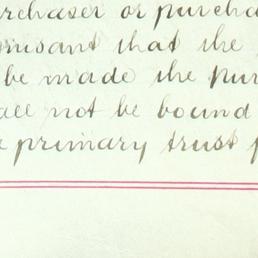 purchaser or purcha
that the
be made the pur
all not be bound
primary trust